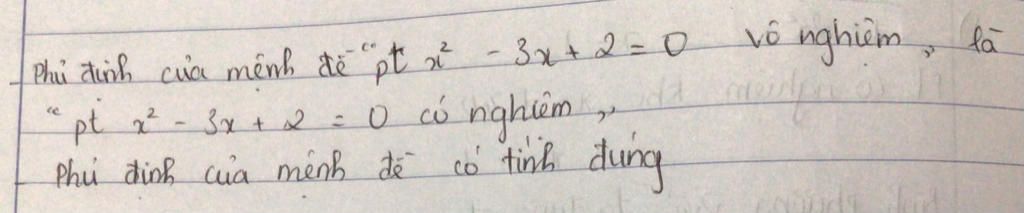 Phủ định của mệnh đề "pt x² - 3x + 2 = 0 vô nghiệm" là
"pt x² - 3x + 2 = 0 có nghiệm"
Phủ định của mệnh đề có tính đúng